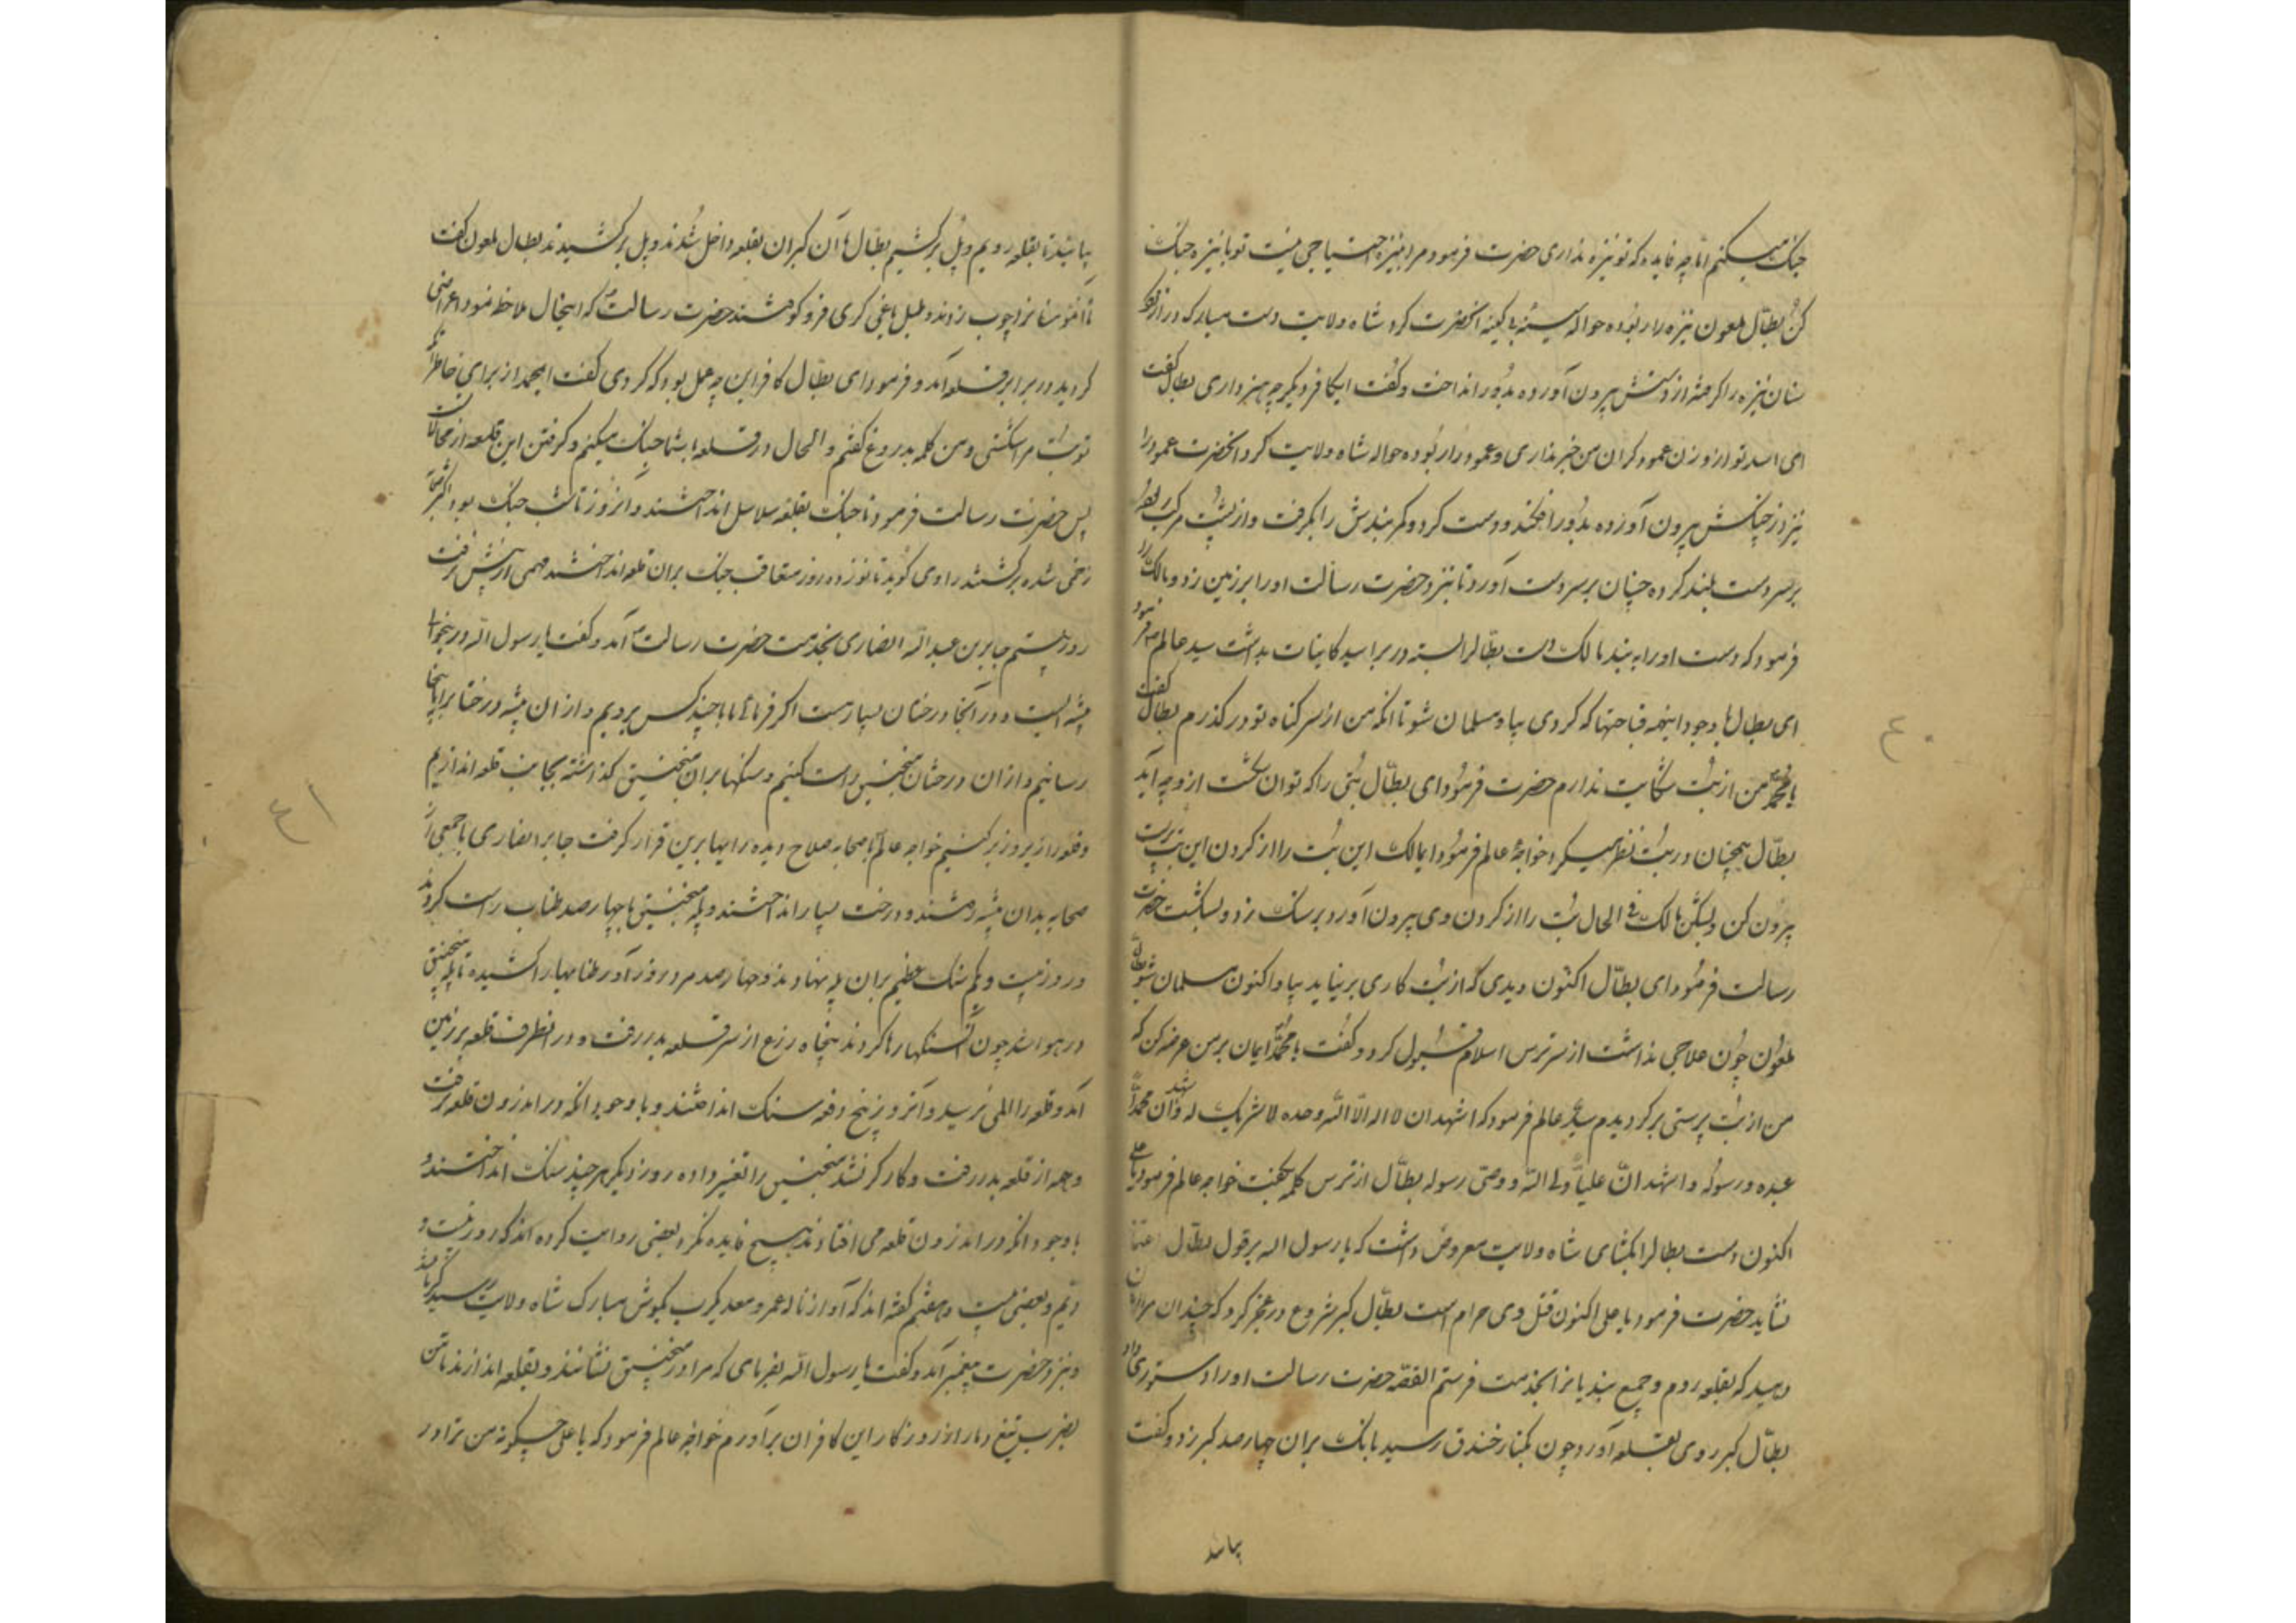 جنک میکنم اما چه فایده که تو نیزه نداری حضرت فرمود مرا بنیزه احتیاجی نیست تو با نیزه جنک
کن بطّال ملعون نیزه را ربوده حواله سینه بی کینه انحضرت کرد شاه ولایت دست مبارک دراز کرد
سنان نیزه را کرفته از دستش بیرون آورده بدور انداخت و کفت ایکافر دیکر چه هنر داری بطال کفت
ای اسد تو از وزن عمود کران من خبر نداری و عمود را ربوده حواله شاه ولایت کرد انحضرت عمود را
نیز از چنکش بیرون آورده بدور افکند و دست کرد و کمربندش را بکرفت و از پشت مرکب
بر سر دست بلند کرده چنان بر سر دست آورد تا بنزد حضرت رسالت او را بر زمین زد و مالک را
فرمود که دست او را به بند مالک دست بطّالرا بسته در برابر سید کاینات بداشت سید عالم فرمود
ای بطال با وجود اینهمه قباحتها که کردی بیا و مسلمان شو تا انکه من از سر کناه تو در کذرم بطال کفت
یا محمد من از بت شکایت ندارم حضرت فرمود ای بطّال بتی را که توان شکست ازو چه آید
بطّال همچنان در بت نظر میکرد خواجهٔ عالم فرمود ایمالک این بت را از کردن این بت پرست
بیرون کن و بشکن مالک فی الحال بت را از کردن وی بیرون آورد و بر سنک زد و بشکست حضرت
رسالت فرمود ای بطّال اکنون دیدی که از بت کاری بر نیاید بیا و اکنون مسلمان شو بطال
ملعون چون علاجی نداشت از سر ترس اسلام قبول کرد و کفت یا محمد ایمان بر من عرضه کن که
من از بت پرستی بر کردیدم سید عالم فرمود که اشهد ان لا اله الّا الله وحده لا شریک له و اشهد ان محمدا
عبده و رسوله و اشهد انّ علیاً ولی الله و وصی رسوله بطّال از ترس کلمه بکفت خواجه عالم فرمود یا علی
اکنون دست بطالرا بکشای شاه ولایت معروض داشت که یا رسول اله بر قول بطّال اعتماد
نشاید حضرت فرمود یا علی اکنون قتل وی حرام است بطّال کبر شروع در عجز کرد که چندان مرا امان
دهید که بقلعه روم و جمیع بندیانرا بخدمت فرستم القصّه حضرت رسالت او را دستوری داد
بطّال کبر روی بقلعه آورد چون بکنار خندق رسید بانک بران چهارصد کبر زد و کفت
بیائید
٤٠
بیائید تا بقلعه رویم و پل بر کشیم بطّال با آن کبران بقلعه داخل شدند و پل بر کشیدند بطال ملعون کفت
چوب زدند و طبل یاغی کری فرو کوفتند حضرت رسالت که اینحال ملاحظه نمود اعراضی
کردید در برابر قلعه آمد و فرمود ای بطّال کافر این چه عمل بود که کردی کفت ایمحمد از برای خاطر انکه
تو بت مرا شکستی و من کلمه بدروغ کفتم و الحال در قلعه با شما جنک میکنم و کرفتن این قلعه از محالات
پس حضرت رسالت فرمود تا جنک بقلعه سلاسل انداختند و آنروز تا شب جنک بود اکثر صحابه
زخمی شده بر کشتند راوی کوید تا نوزده روز متعاقب جنک بران قلعه انداختند مهمی از پیش نرفت
روز بیستم جابر بن عبد الله انصاری بخدمت حضرت رسالت آمد و کفت یا رسول الله
بیشه ایست و در آنجا درختان بسیار هست اکر فرمائی ما با چند کس برویم و از ان بیشه درختانرا باینجا
رسانیم و از ان درختان منجنیق راست کنیم و سنکها بران منجنیق کذاشته بجانب قلعه اندازیم
و قلعه را زیر و زبر کنیم خواجه عالم با صحابه صلاح دیده رایها برین قرار کرفت جابر انصاری با جمعی از
صحابه بدان بیشه رفتند و درخت بسیار انداختند و پله منجنیق با چهارصد طناب راست کردند
در روز بیست و یکم سنک عظیم بران پله نهادند و چهارصد مرد زورآور طنابها را کشیده تا پله منجنیق
در هوا شد چون سنکها رها کردند پنجاه زرع از سر قلعه بدر رفت و در انطرف قلعه بر زمین
آمد و قلعه را المی نرسید و آنروز پنج دفعه سنک انداختند و با وجود انکه در اندرون قلعه نرفت
و همه از قلعه بدر رفت و کارکر نشد منجنیق را تغییر داده روز دیکر هر چند سنک انداختند
با وجود انکه در اندرون قلعه می افتادند هیچ فایده نکرد بعضی روایت کرده اند که روز بیست و
و بعضی بیست و هفتم کفته اند که آواز ناله عمرو معدیکرب بکوش مبارک شاه ولایت رسید
و بنزد حضرت پیغمبر آمد و کفت یا رسول الله بفرمای که مرا در منجنیق نشانند و بقلعه اندازند تا من
بضرب تیغ دمار از روزکار این کافران برآورم خواجه عالم فرمود که یا علی چکونه من ترا در
٤١